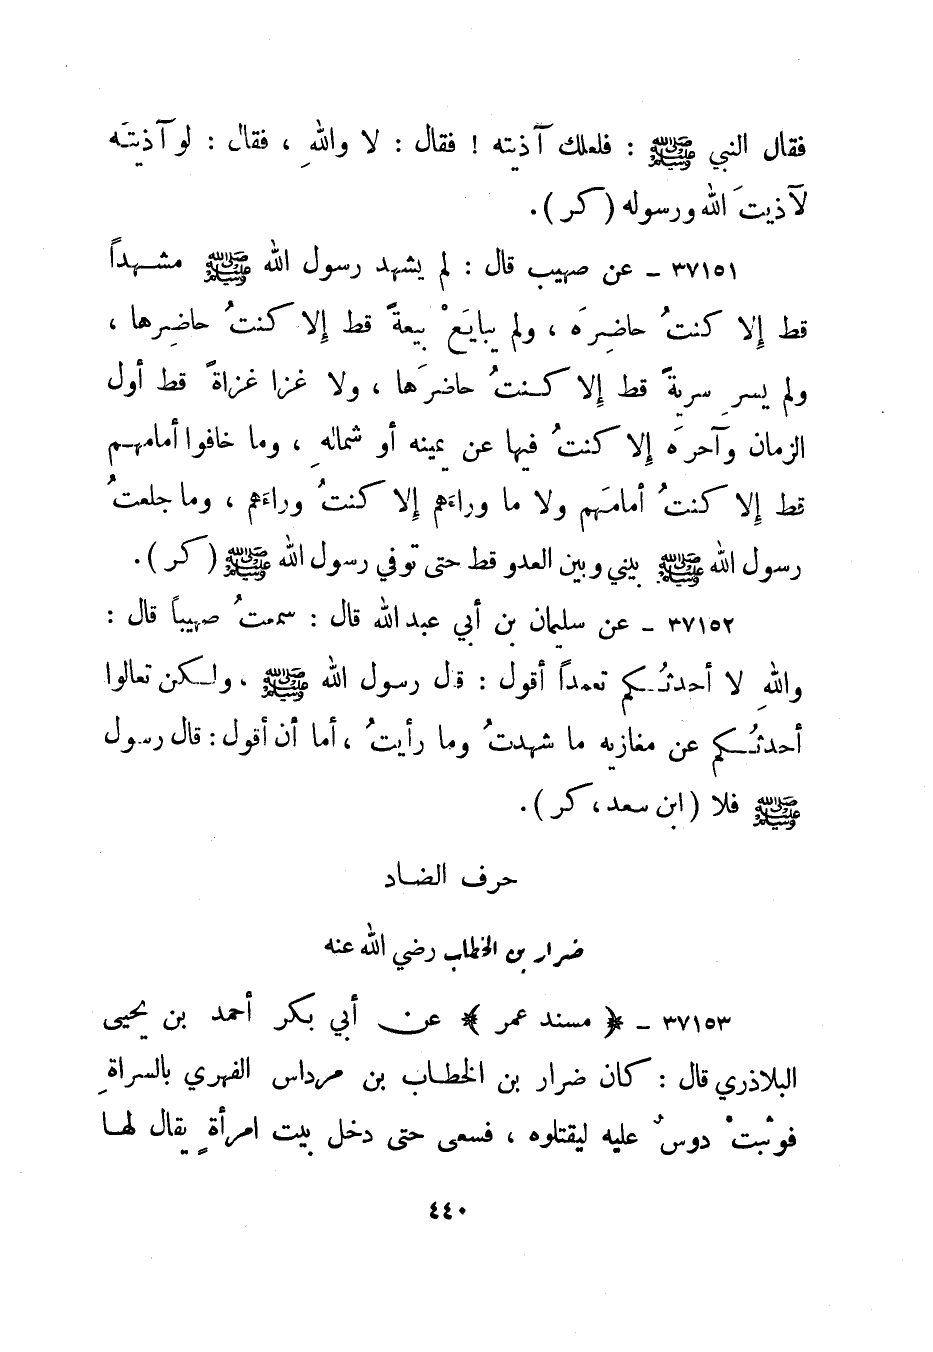 فقال النبي ﷺ : فلعلك آذيته ! فقال : لا واللهِ ، فقال : لو آذيتَه
لآذيتَ الله ورسوله ( كر ) .
٣٧١٥١ ـ عن صهيب قال : لم يشهد رسول الله ﷺ مشهداً
قط إلا كنتُ حاضِرَه ، ولم يبايَعْ بيعةً قط إلا كنتُ حاضِرها ،
ولم يسرِ سريةً قط إلا كنتُ حاضرَها ، ولا غزا غزاةً قط أول
الزمان وآحرَه إلا كنتُ فيها عن يمينه أو شمالهِ ، وما خافوا أمامهم
قط إلا كنتُ أمامَهم ولا ما وراءَهم إلا كنتُ وراءَهم ، وما جلعتُ
رسول الله ﷺ بيني وبين العدو قط حتى توفي رسول الله ﷺ ( كر ) .
٣٧١٥٢ ـ عن سليمان بن أبي عبد الله قال : سمعتُ صهيباً قال :
واللهِ لا أحدثُكم تعمداً أقول : قل رسول الله ﷺ ، ولكن تعالوا
أحدثُكم عن مغازيه ما شهدتُ وما رأيتُ ، أما أن أقول : قال رسول
ﷺ فلا ( ابن سعد ، كر ) .
حرف الضاد
ضرار بن الخطاب رضي الله عنه
٣٧١٥٣ ـ ﴿ مسند عمر ﴾ عن أبي بكر أحمد بن يحيى
البلاذري قال : كان ضرار بن الخطاب بن مرداس الفهري بالسراةِ
فوثبتْ دوسٌ عليه ليقتلوه ، فسعى حتى دخل بيت امرأةٍ يقال لها
٤٤٠